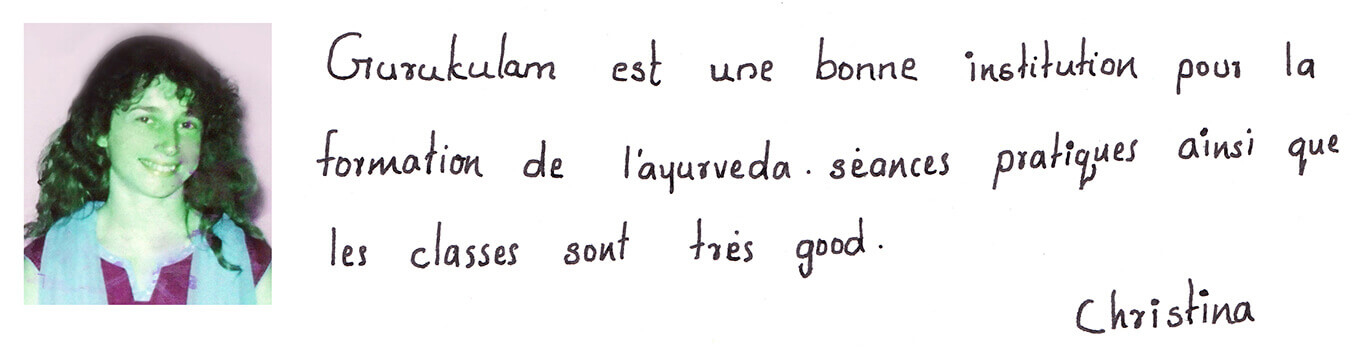 Gurukulam est une bonne institution pour la
formation de l'ayurveda. séances pratiques ainsi que
les classes sont très good.
Christina